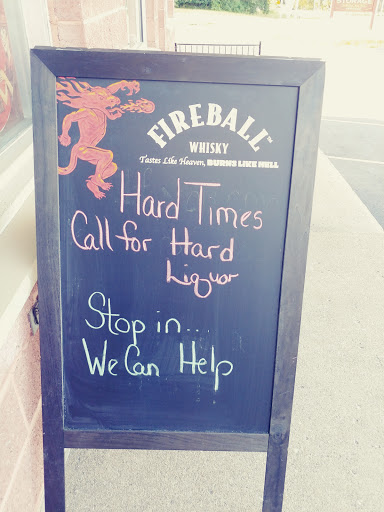 FIREBALL
WHISKY
Tastes Like Heaven, BURNS LIKE HELL
Hard Times
Call for Hard
Liquor
Stop in...
We Can Help
STORAGE